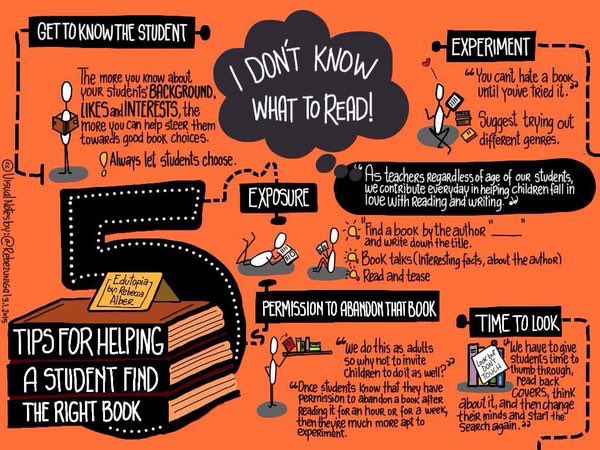 GET TO KNOW THE STUDENT
The more you know about
your students' BACKGROUND,
LIKES and INTERESTS, the
more you can help steer them
towards good book choices.
! Always let students choose.
I DON'T KNOW
WHAT TO READ!
EXPERIMENT
"You can't hate a book
until you've tried it."
Suggest trying out
different genres.
"As teachers regardless of age of our students,
we contribute everyday in helping children fall in
love with Reading and writing."
EXPOSURE
"Find a book by the author "____"
and write down the title.
Book talks (Interesting facts, about the author)
Read and tease
5
Edutopia
by: Rebecca
Alber
TIPS FOR HELPING
A STUDENT FIND
THE RIGHT BOOK
PERMISSION TO ABANDON THAT BOOK
"We do this as adults
so why not to invite
children to do it as well?"
"Once students know that they have
permission to abandon a book after
reading it for an hour or for a week,
then they're much more apt to
experiment.
TIME TO LOOK
Look but
DON'T
TOUCH
"We have to give
students time to
thumb through,
read back
covers, think
about it, and then change
their minds and start the
search again."
© Visual Notes by: @Rebezuniga | 3.1.2015